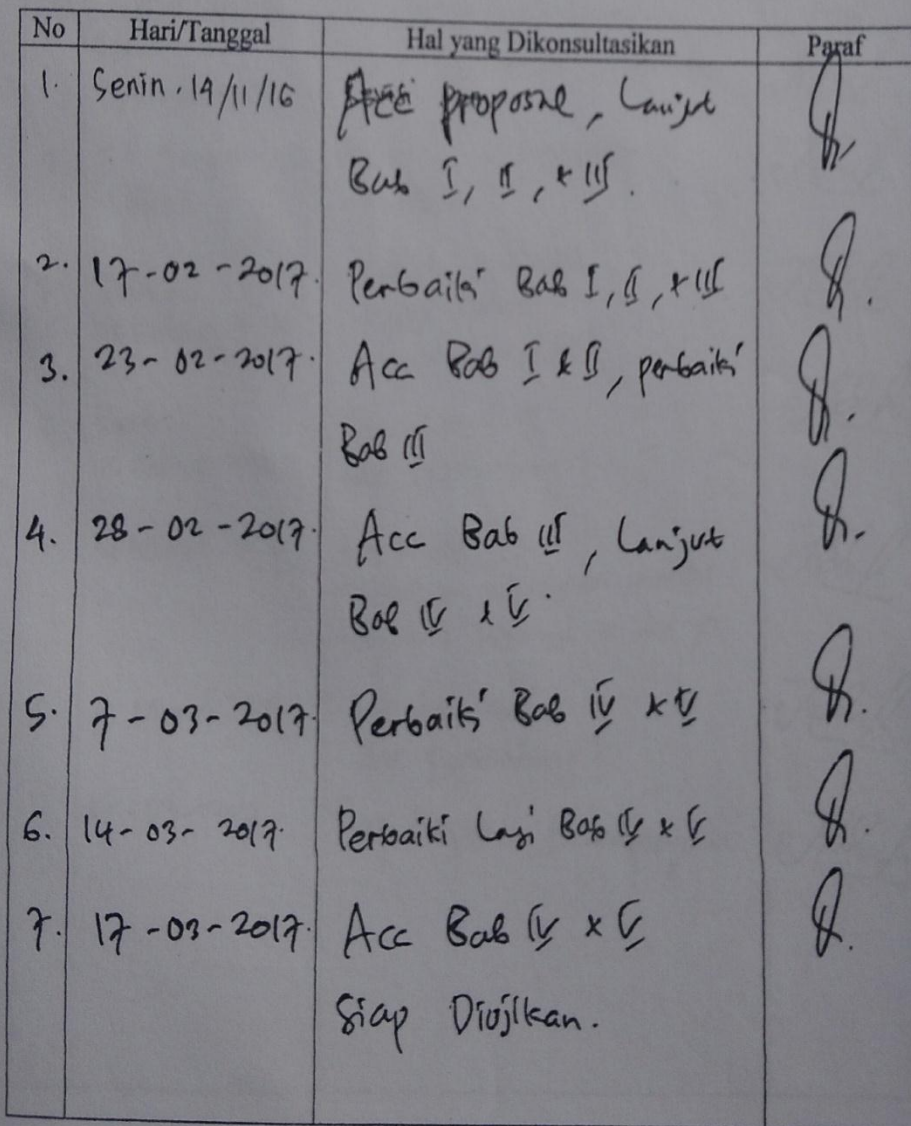 No Hari/Tanggal Hal yang Dikonsultasikan Paraf
1. Senin, 14/11/16 Acc proposal, Lanjut
Bab I, II, & III.
2. 17-02-2017. Perbaiki Bab I, II, & III
3. 23-02-2017. Acc Bab I & II, perbaiki
Bab III
4. 28-02-2017. Acc Bab III, Lanjut
Bab IV & V.
5. 7-03-2017 Perbaiki Bab IV & V
6. 14-03-2017. Perbaiki Lagi Bab IV & V
7. 17-03-2017. Acc Bab IV & V
Siap Diujikan.